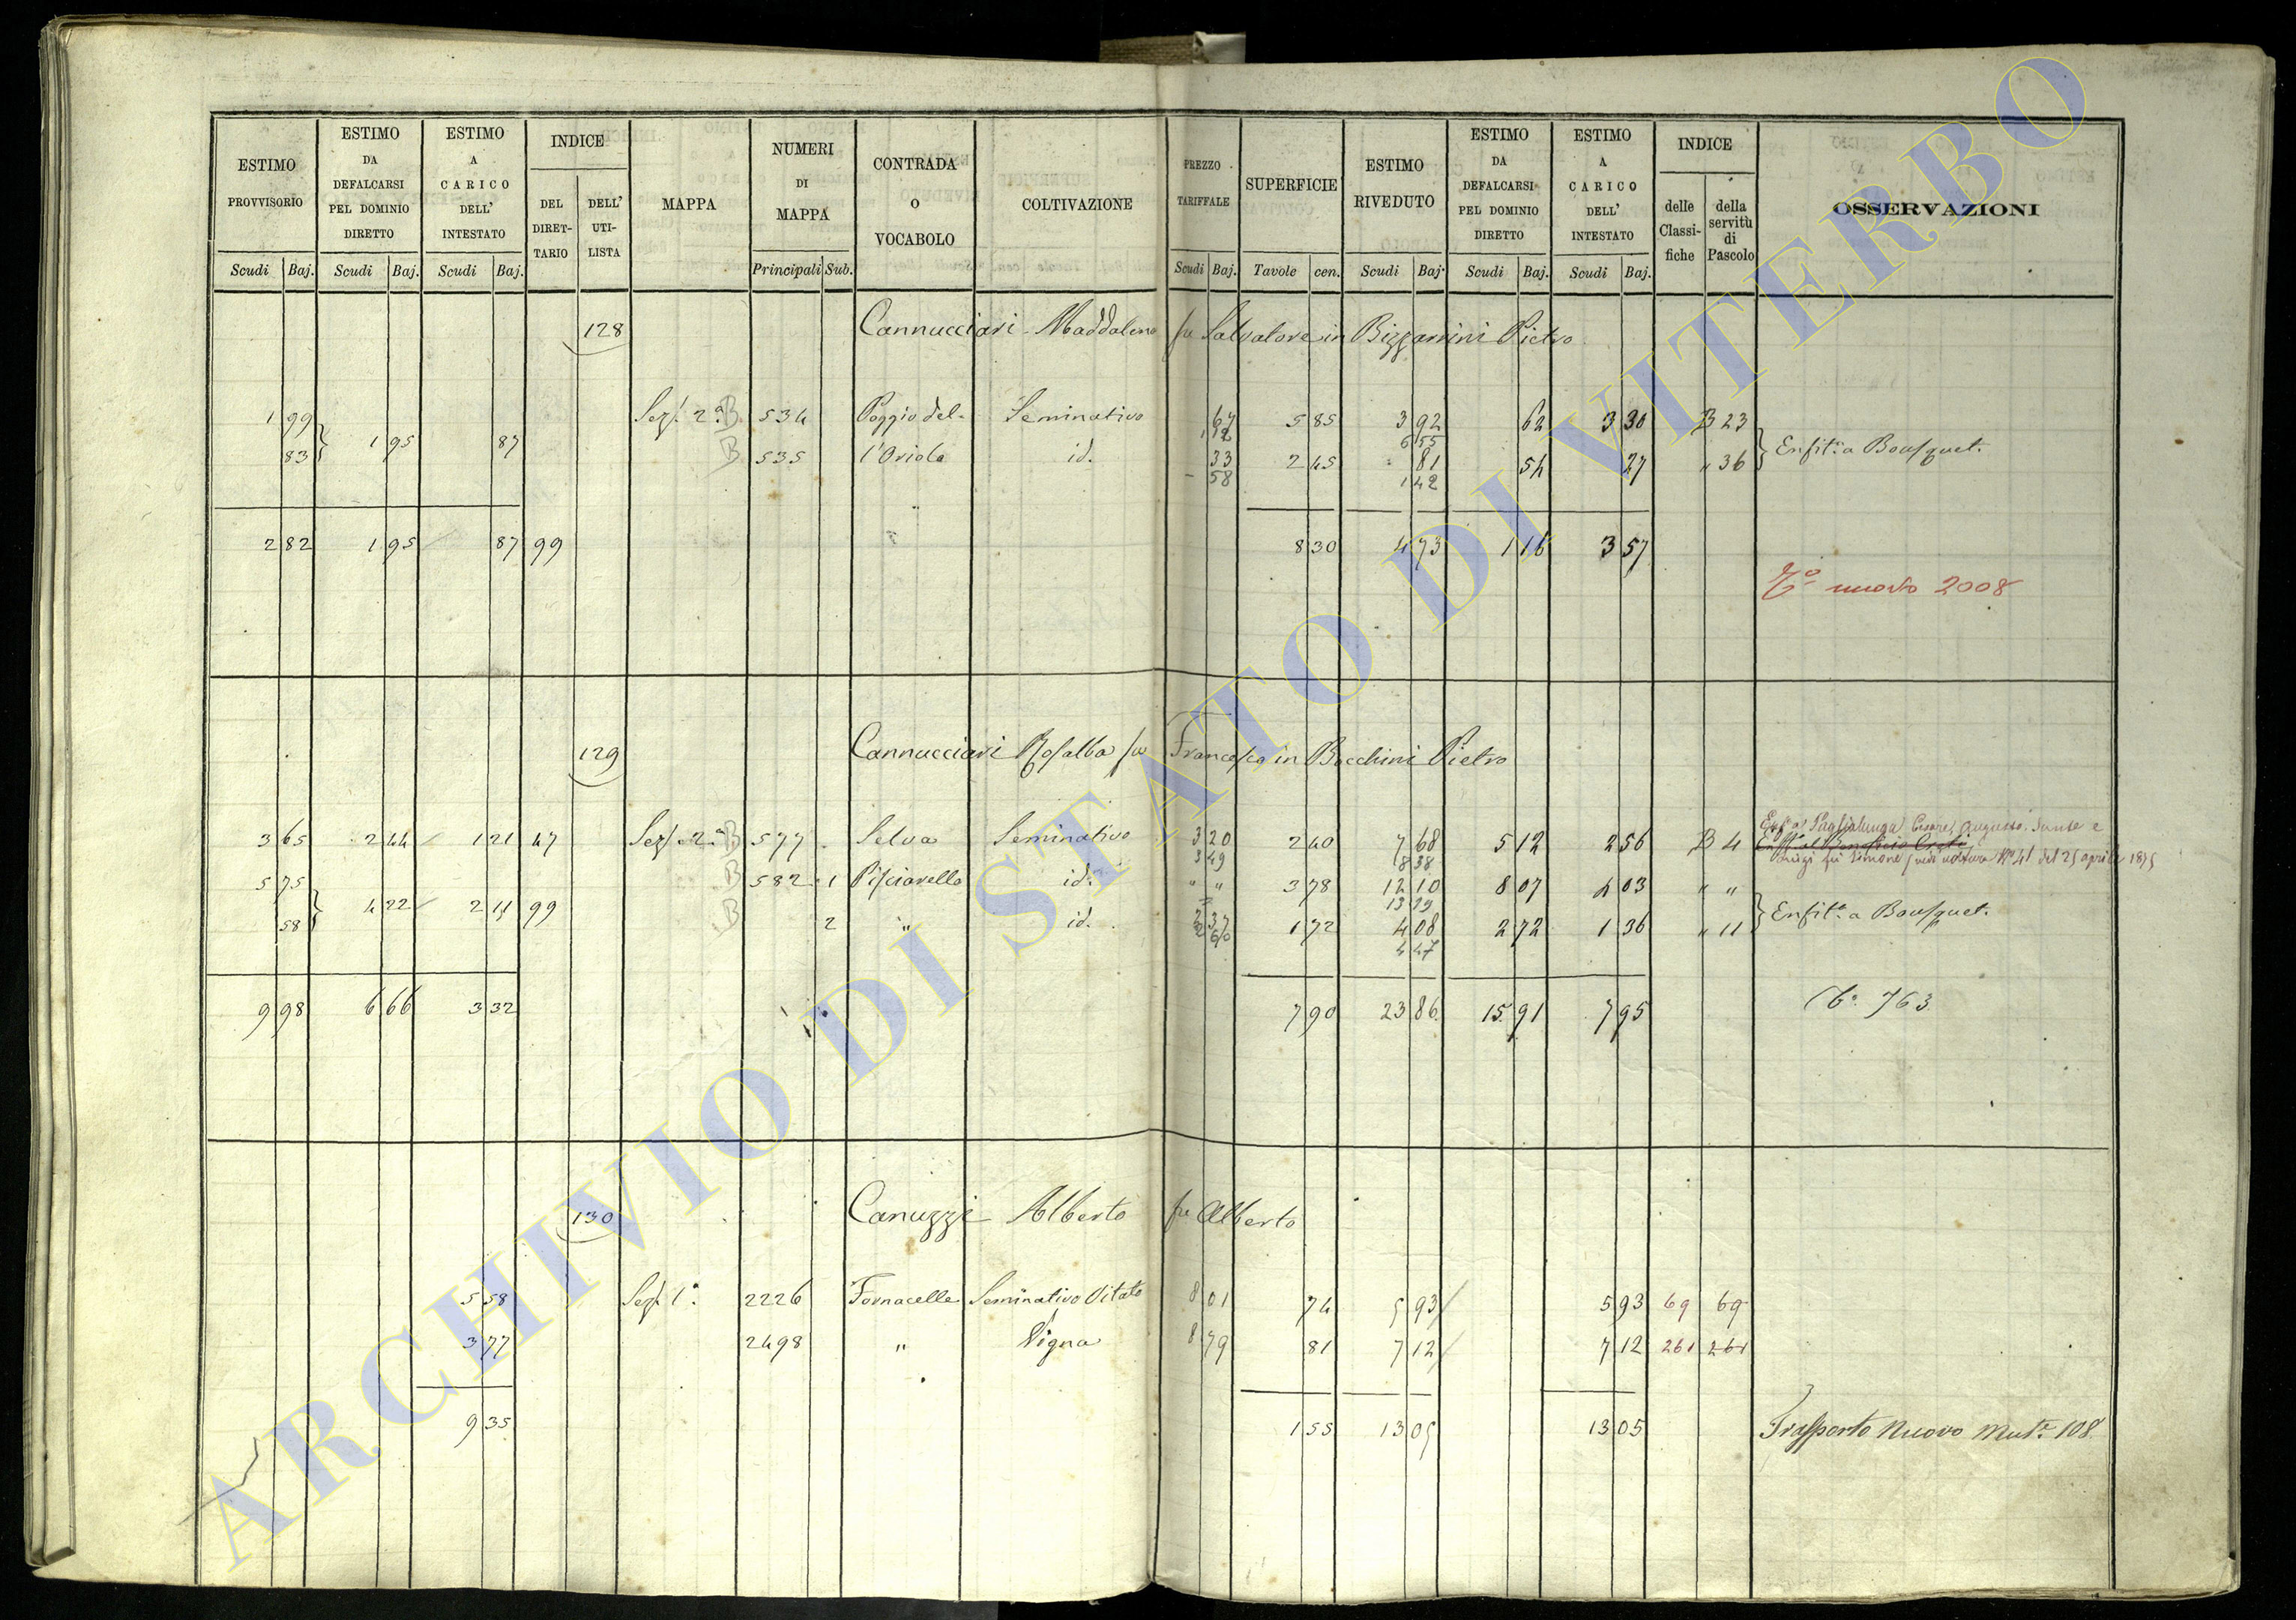 ESTIMO PROVVISORIO | ESTIMO DA DEFALCARSI PEL DOMINIO DIRETTO | ESTIMO A CARICO DELL' INTESTATO | INDICE DEL DIRET-TARIO | DELL' UTI-LISTA | MAPPA | NUMERI DI MAPPA | CONTRADA O VOCABOLO | COLTIVAZIONE | PREZZO TARIFFALE | SUPERFICIE | ESTIMO RIVEDUTO | ESTIMO DA DEFALCARSI PEL DOMINIO DIRETTO | ESTIMO A CARICO DELL' INTESTATO | INDICE delle Classi-fiche | della servitù di Pascolo | OSSERVAZIONI
Scudi Baj. Scudi Baj. Scudi Baj. Principali Sub. Scudi Baj. Tavole cen. Scudi Baj. Scudi Baj. Scudi Baj.
128 Cannucciari Maddalena fu Salvatore in Bizzarrini Pietro
1 99 Sez. 2ª B 534 Poggio del- Seminativo 67 5 85 3 92 62 3 30 B 23
1 95 87 1 12 6 55 Enfit. a Bousquet.
83 B 535 l'Oriolo id. 33 2 45 81 54 27 " 36
58 1 42
2 82 1 95 87 99 8 30 4 73 1 16 3 57
nuovo 2008
129 Cannucciari Rosalba fu Francesco in Bocchini Pietro
Enfit. a Paglialunga Cesare, Augusto, Sante e
3 65 2 44 1 21 47 Sez. 2ª B 577 Selva Seminativo 3 20 2 40 7 68 5 12 2 56 B 4 Enfit. al Beneficio
3 49 8 38 Luigi fu Simone vedi voltura Nº 41 del 25 aprile 1875
5 75 B 582 1 Pisciarello id. " " 3 78 12 10 8 07 4 03 " "
4 22 2 11 99 13 19 Enfit. a Bousquet.
58 B 2 " id. 2 37 1 72 4 08 2 72 1 36 " 11
2 60 4 47
9 98 6 66 3 32 7 90 23 86 15 91 7 95 763
130 Canuzzi Alberto fu Alberto
5 58 Sez. 1ª 2226 Fornacelle Seminativo Vitato 8 01 74 5 93 5 93 69 69
3 77 2498 " Vigna 8 79 81 7 12 7 12 261 261
9 35 1 55 13 05 13 05 Trasporto Nuovo Mut. 108
ARCHIVIO DI STATO DI VITERBO